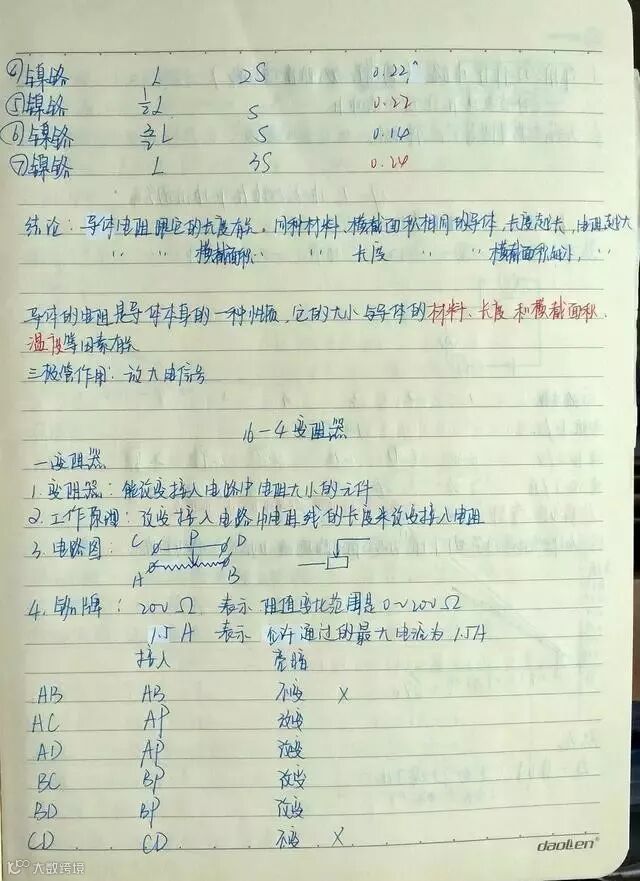 ④镍铬 L 2S 0.22
⑤镍铬 ½L S 0.22
⑥镍铬 3/2L S 0.14
⑦镍铬 L 3S 0.24
结论：导体电阻跟它的长度有关。同种材料、横截面积相同的导体，长度越长，电阻越大
〃 〃 横截面积〃 〃 长度 〃 〃 横截面积越小，〃
导体的电阻是导体本身的一种性质，它的大小与导体的材料、长度和横截面积、
温度等因素有关
三极管作用：放大电信号
16-4变阻器
一变阻器
1.变阻器：能改变接入电路中电阻大小的元件
2.工作原理：改变接入电路中电阻线的长度来改变接入电阻
3.电路图：C P D
A B
4.铭牌：200Ω 表示阻值变化范围是0~200Ω
1.5A 表示允许通过的最大电流为1.5A
接入 亮暗
AB AB 不变 ×
AC AP 改变
AD AP 改变
BC BP 改变
BD BP 改变
CD CD 不变 ×
daolien
大数跨境